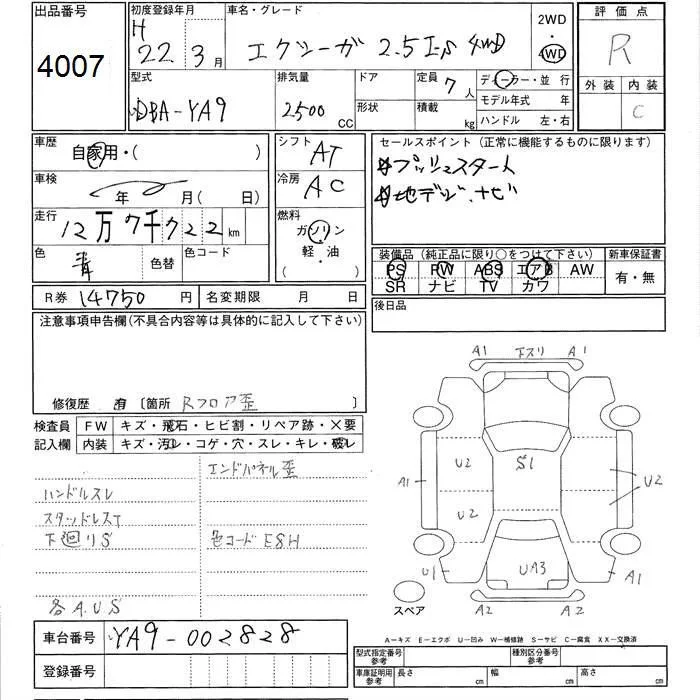 出品番号 初度登録年月 車名・グレード 2WD 評価点
4007 H 22年 3月 エクシーガ 2.5 I-S 4WD ・ 4WD R
型式 排気量 ドア 定員 7人 ディーラー・並 行 外 装 内 装
DBA-YA9 2500 CC 形状 積載 kg モデル年式 年 C
ハンドル 左・右
車歴 自家用・( ) シフト AT セールスポイント (正常に機能するものに限ります)
車検 年 月( 日) 冷房 AC プッシュスタート
走行 12万7千722km 燃料 ガソリン 地デジ.ナビ
色 青 色替 色コード 軽・油 ( ) 装備品 (純正品に限り○をつけて下さい) 新車保証書
PS PW ABS エアB AW 有・無
SR ナビ TV カワ
R券 14750 円 名変期限 月 日 後日品
注意事項申告欄(不具合内容等は具体的に記入して下さい)
修復歴 有 〔箇所 Rフロア歪 〕
検査員 FW キズ・飛石・ヒビ割・リペア跡・X要
記入欄 内装 キズ・汚レ・コゲ・穴・スレ・キレ・破レ
エンドパネル歪
ハンドルスレ
スタッドレスT
下廻りS 色コードESH
各A.U.S
車台番号 YA9-002828
登録番号
A1 下スリ A1
A1 U2 S1 U2
U2
U1 UA3 A1
スペア A2 A2
A－キズ E－エクボ U－凹み W－補修跡 S－サビ C－腐食 XX－交換済
型式指定番号 参考 種別区分番号 参考
車庫証明用 参考 長さ cm 幅 cm 高さ cm